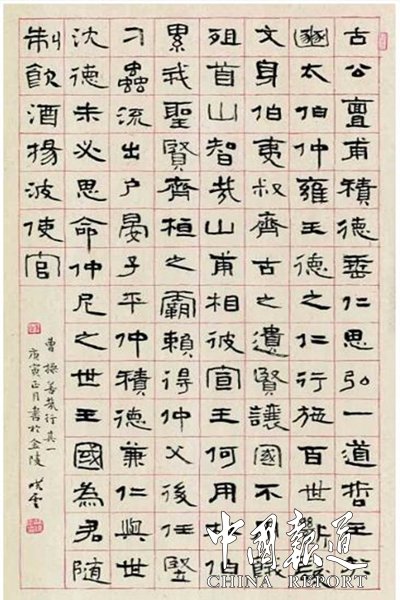 古公亶甫積德垂仁思弘一道哲王於
豳太伯仲雍王德之仁行施百世斷髮
文身伯夷叔齊古之遺賢讓國不用餓
殂首山智哉山甫相彼宣王何用杜伯
累我聖賢齊桓之霸賴得仲父後任豎
刁蟲流出戶晏子平仲積德兼仁與世
沈德未必思命仲尼之世王國為君隨
制飲酒揚波使官
曹操善哉行其一
庚寅正月書於金陵
中國報道
CHINA REPORT